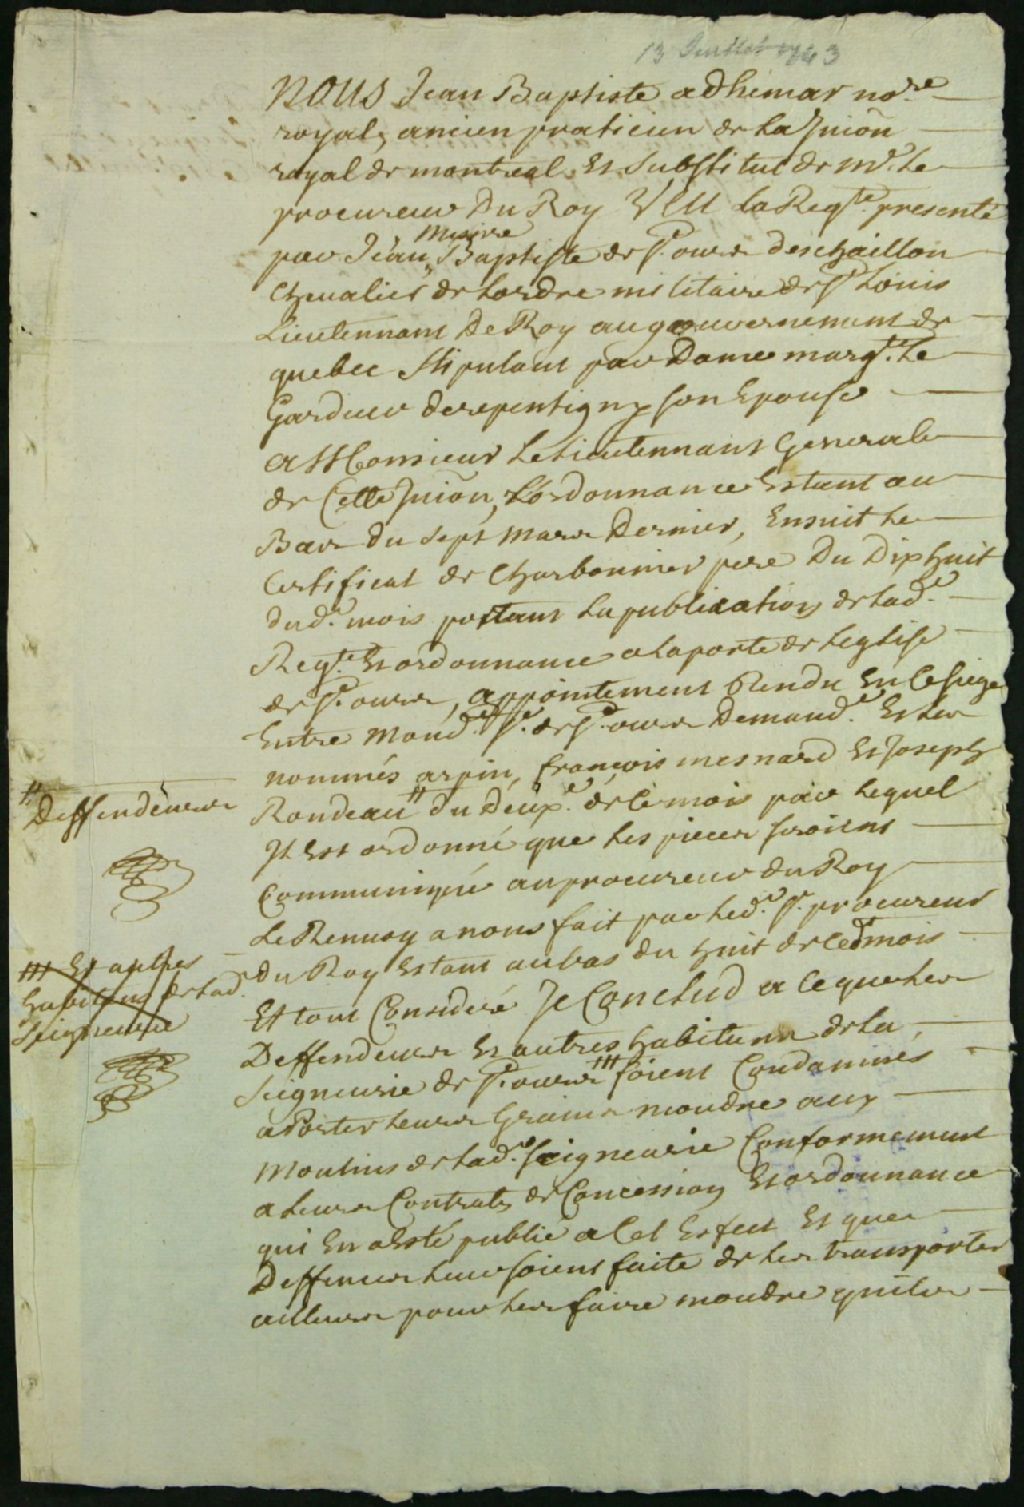 13 Juillet 1743
NOUS Jean Baptiste adhemar no.re
royal, ancien praticien de La Juion
royal de montreal, Et Substitut de Mr. Le
procureur Du Roy VEU La Reqte. presenté
par Jean Baptiste de St. ours deschaillon
Messire
Chevalier de Lordre militaire de St Louis
Lieutennant De Roy au gouvernement de
quebec Stipulant par Dame margte. Le
Gardeur de repentigny son Epouse
a Monsieur Le Lieutennant General
de Cette Juion, L'ordonnance Estant au
Bas du sept Mars Dernier, Ensuit Le
Certificat de Charbonnier pere Du Dixhuit
dud. mois portant La publication de Lad.e
Reqte. Et ordonnance a La porte de Leglise
de St. ours, appointement Rendu En Ce siege
Entre mond. Sr. de St. ours Demand.r Et Les
nommés arpin, françois mesnard Et Joseph
Rondeau " du Deux.e de Ce mois par Lequel
" Deffendeurs
Il Est ordonné que Les pieces seroient
Communiqué au procureur du Roy
Le Renvoy a nous fait par Led. Sr. procureur
du Roy Estant au bas du huit de Ced. mois
''' Et autres
habitans de Lad.
seigneurie
Et tout Consideré Je Conclud a ce que Les
Deffendeurs Et autres habitans de La
Seigneurie de St. ours ''' soient Condamnés
a Porter Leurs Grains moudre aux
Moulins de Lad.e seigneurie Conformement
a Leurs Contrats de Concession Et ordonnance
qui En a Esté publié a Cet Esfect Et que
Deffences Leur soient faite de Les transporter
ailleurs pour Les faire moudre qu'ils